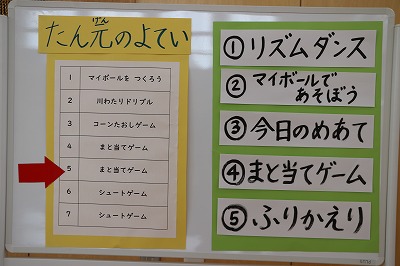 たん元のよてい
げん
1 マイボールを つくろう
2 川わたりドリブル
3 コーンたおしゲーム
4 まと当てゲーム
5 まと当てゲーム
6 シュートゲーム
7 シュートゲーム
①リズムダンス
②マイボールで
あそぼう
③今日のめあて
④まと当てゲーム
⑤ふりかえり